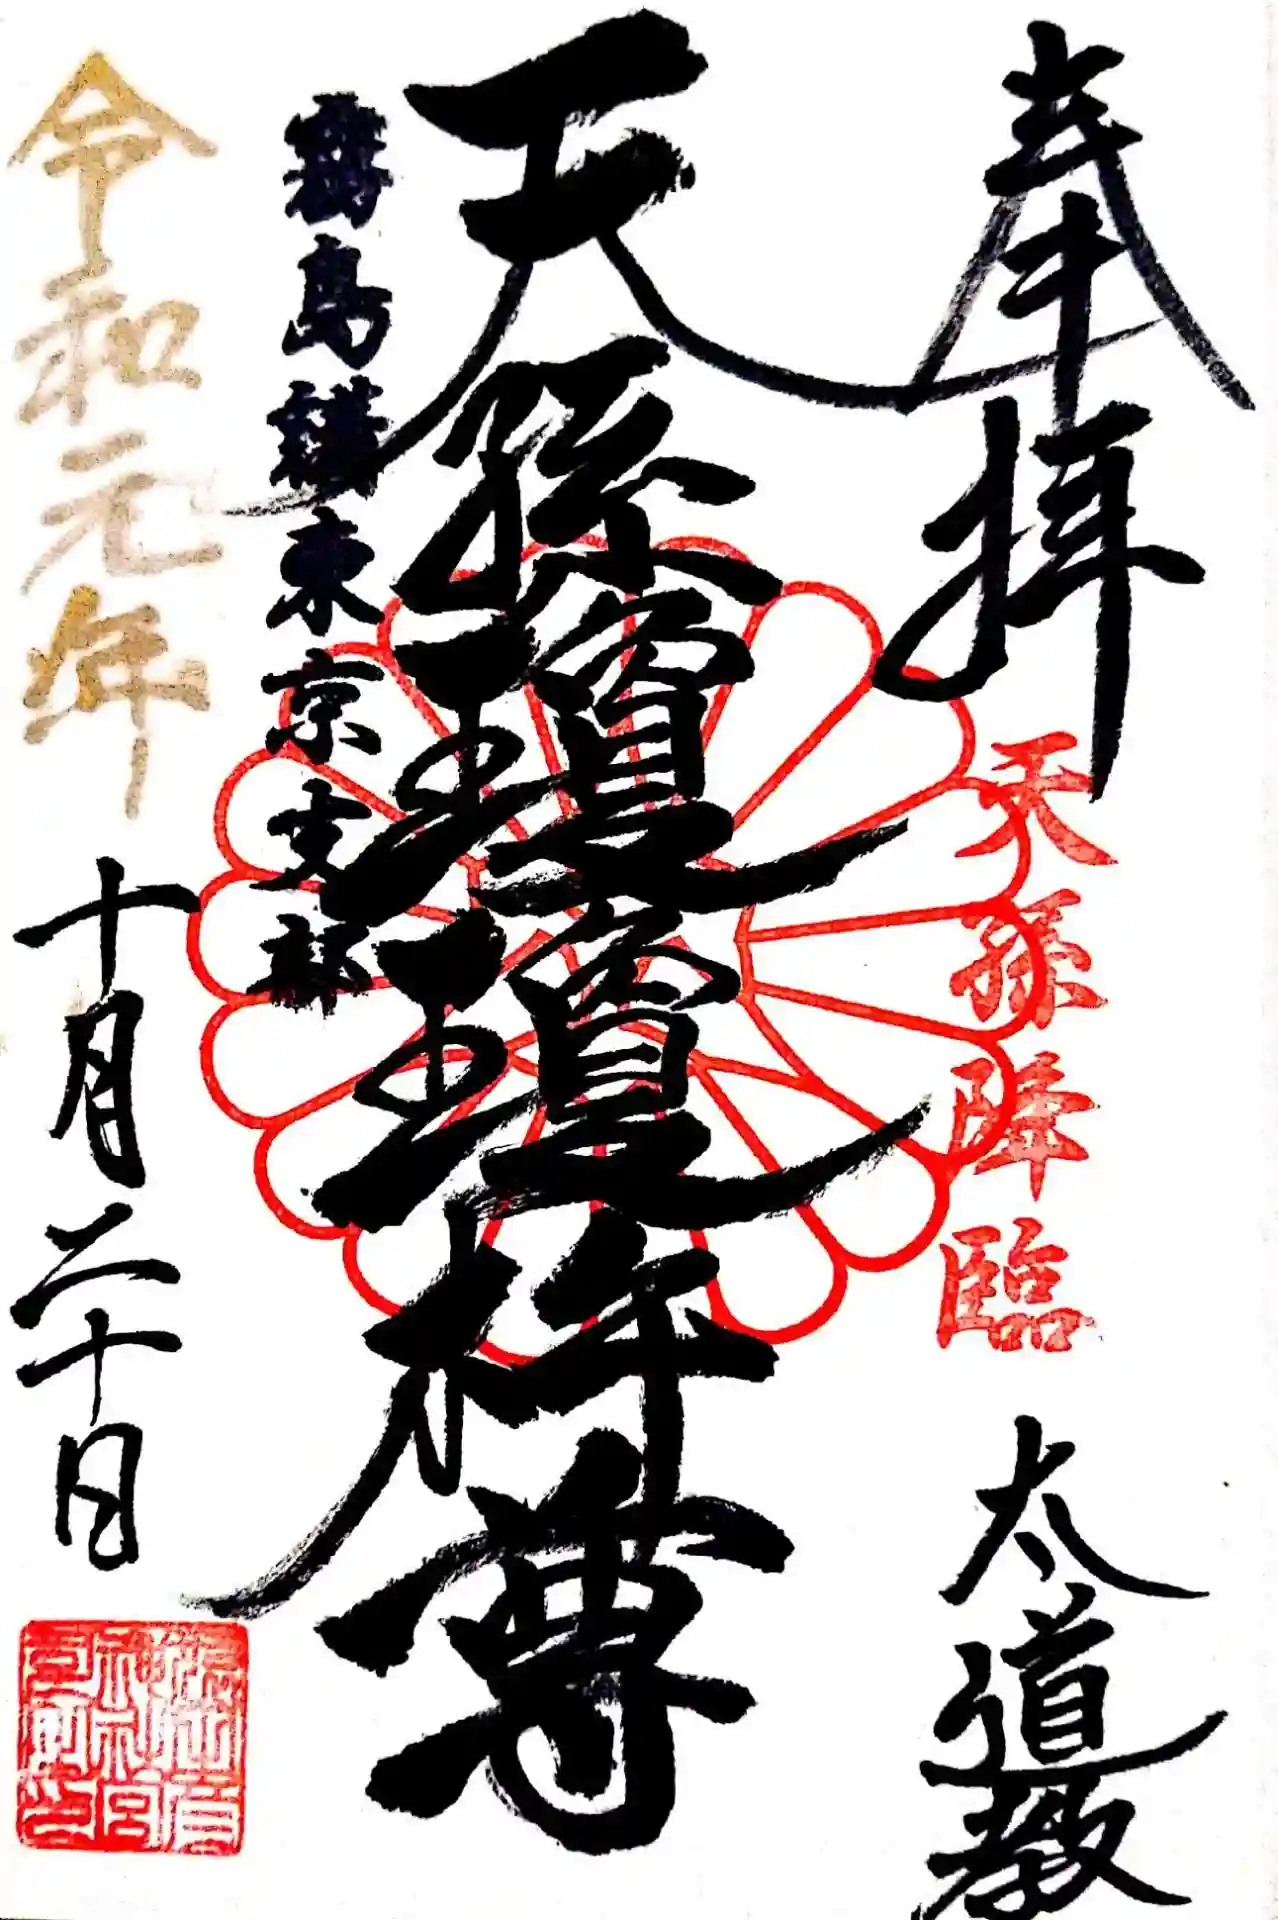 奉拝
天孫降臨
太道教
天孫瓊瓊杵尊
霧島講東京支部
令和元年
十月二十日